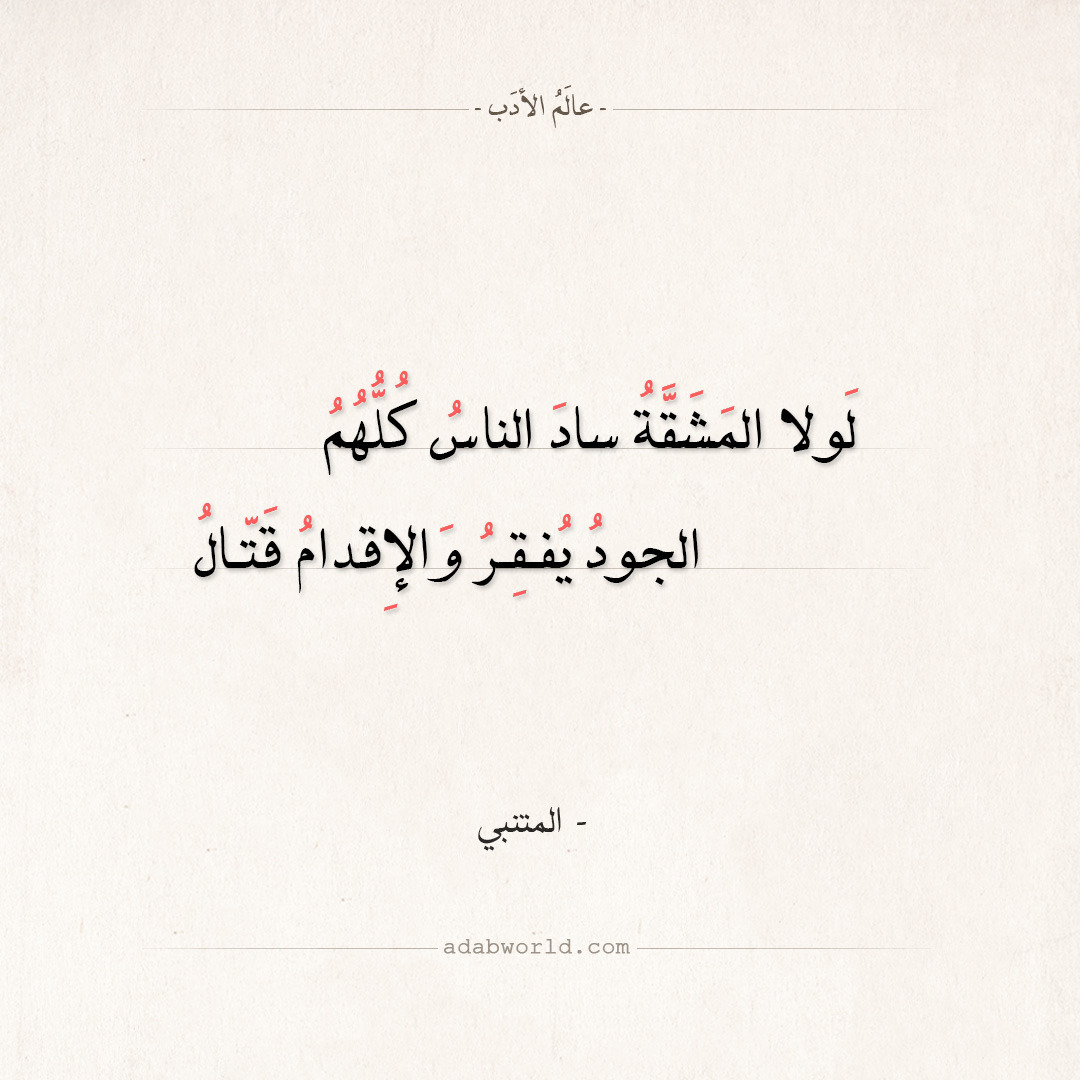 - عالَمُ الأدَب -
لَولا المَشَقَّةُ سادَ الناسُ كُلُّهُمُ
الجودُ يُفـقِـرُ وَالإِقدامُ قَتّـالُ
- المتنبي
adabworld.com